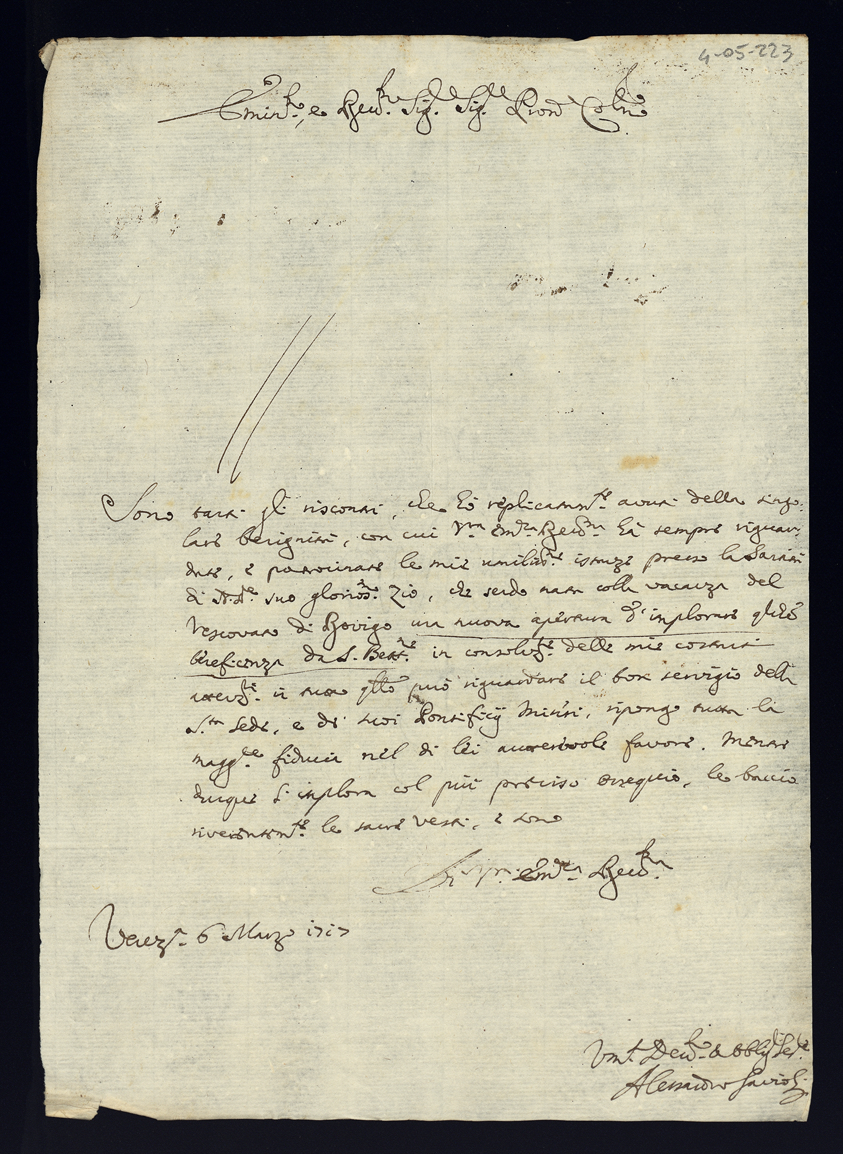 4-05-223
Emin.mo, e Rev.mo Sig.r Sig.r Pron Col.mo
Sono tanti gli riscontri, che hò replicatam.te avuti della singo-
lare benignità, con cui V.ra Em.za Rev.ma hà sempre riguar-
date, e patrocinate le mie umiliss.e istanze presso la Santità
di N. S.re suo glorios.mo Zio, che sendo nata colla vacanza del
Vescovato di Rovigo una nuova apertura d'implorare
beneficenza da S. Beat.ne in consolaz.ne delle mie costanti
in tutto q.llo può riguardare il bon servigio della
S.ta Sede, e di suoi Pontificij Ministri, ripongo tutta la
magg.re fiducia nel di lei autorevole favore. Mentre
dunque l'imploro col più preciso ossequio, le baccio
riverentem.te le sacre vesti, e sono
Di V.ra Em.za Rev.ma
Venez.a 6 Marzo 1717
Um.o Dev.mo & Obblig. Se.re
Alessandro